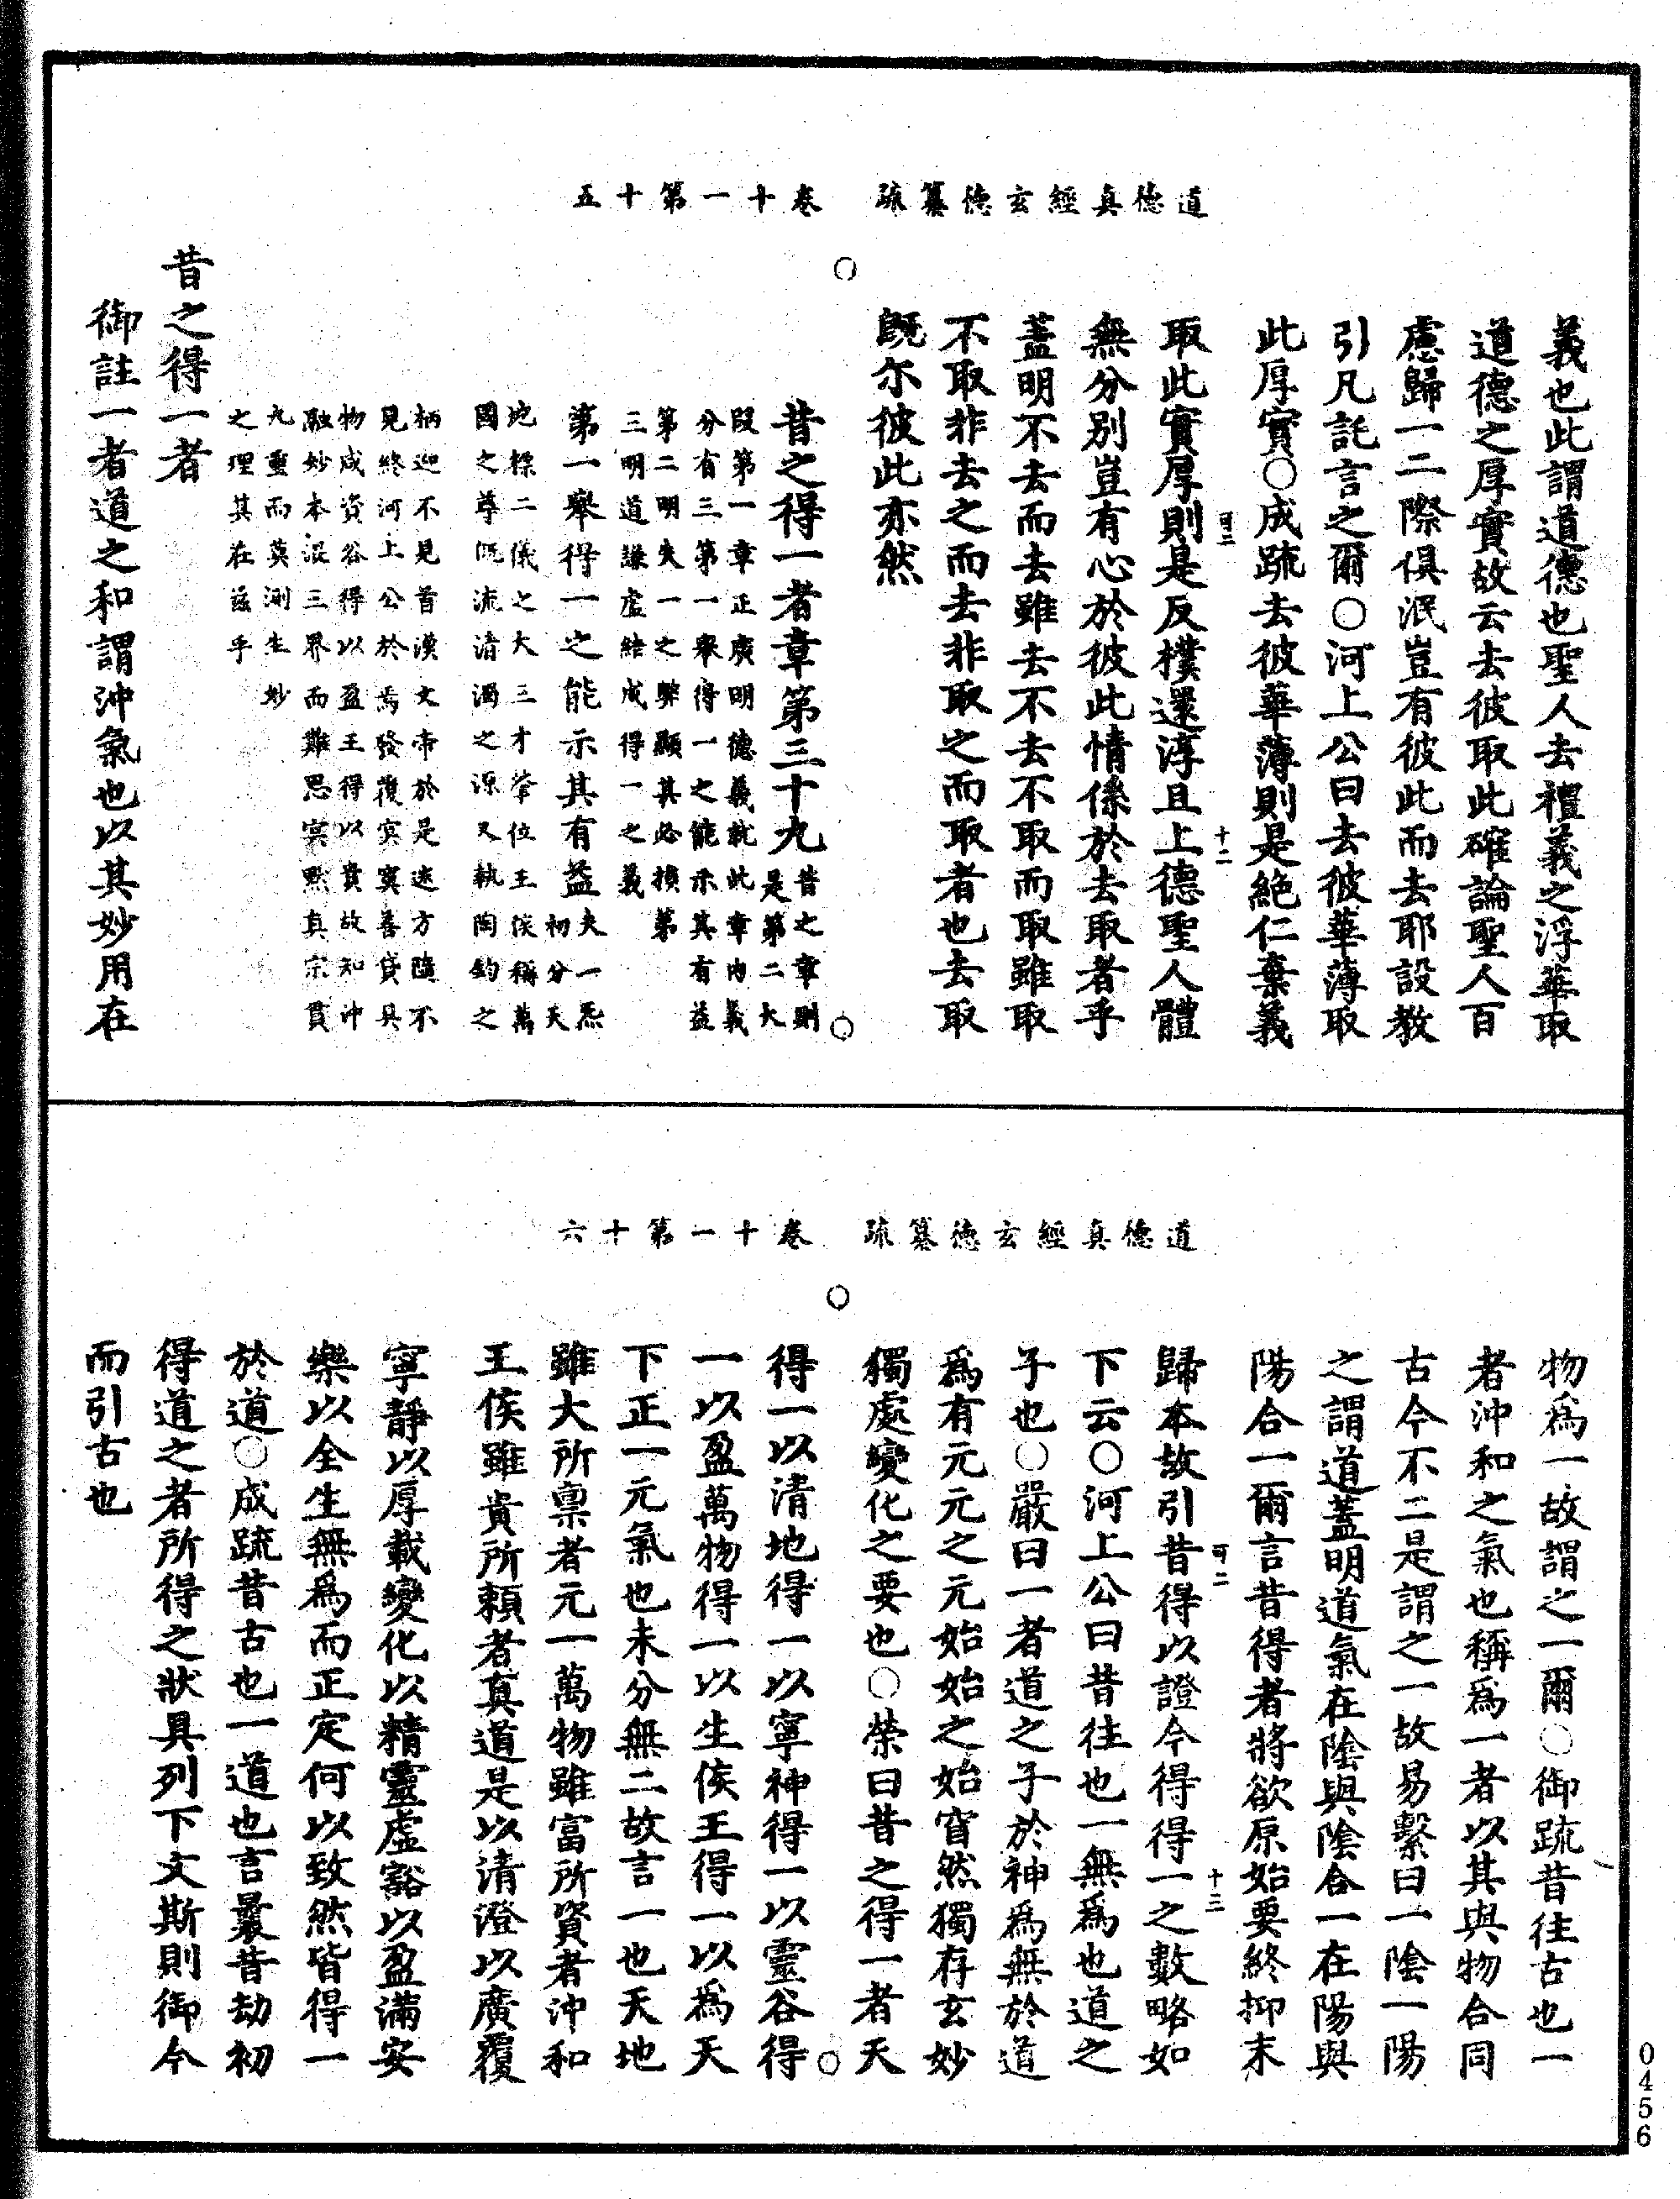 道德真經玄德纂疏　卷十一第十五
義也此謂道德也聖人去禮義之浮華取
道德之厚實故云去彼取此確論聖人百
慮歸一二際俱泯豈有彼此而去耶設教
引凡託言之爾○河上公曰去彼華薄取
此厚實○成疏去彼華薄則是絕仁棄義
取此實厚則是反樸還淳且上德聖人體
可二　十二
無分別豈有心於彼此情係於去取者乎
蓋明不去而去雖去不去不取而取雖取
不取非去之而去非取之而取者也去取
既尔彼此亦然
昔之得一者章第三十九
昔之章則
是第二大
段第一章正廣明德義就此章內義
分有三第一舉得一之能示其有益
第二明失一之弊顯其必損第
三明道謙虛結成得一之義
第一舉得一之能示其有益
夫一炁
初分天
地標二儀之大三才肇位王侯稱萬
國之尊既流清濁之源又執陶鈞之
柄迎不見首漢文帝於是迷方隨不
見終河上公於焉發復冥冥善貸具
物咸資谷得以盈王得以貴故知沖
融妙本混三界而難思冥默真宗貫
九重而莫測生妙
之理其在茲乎
昔之得一者
御註一者道之和謂沖氣也以其妙用在
道德真經玄德纂疏　卷十一第十六
物爲一故謂之一爾○御疏昔往古也一
者沖和之氣也稱爲一者以其與物合同
古今不二是謂之一故易繫曰一陰一陽
之謂道蓋明道氣在陰與陰合一在陽與
陽合一爾言昔得者將欲原始要終抑末
歸本故引昔得以證今得得一之數略如
可二　十三
下云○河上公曰昔往也一無爲也道之
子也○嚴曰一者道之子於神爲無於道
爲有元元之元始始之始窅然獨存玄妙
獨處變化之要也○榮曰昔之得一者天
得一以清地得一以寧神得一以靈谷得
一以盈萬物得一以生侯王得一以爲天
下正一元氣也未分無二故言一也天地
雖大所稟者元一萬物雖富所資者沖和
王侯雖貴所賴者真道是以清澄以廣覆
寧靜以厚載變化以精靈虛豁以盈滿安
樂以全生無爲而正定何以致然皆得一
於道○成疏昔古也一道也言曩昔劫初
得道之者所得之狀具列下文斯則御今
而引古也
0456